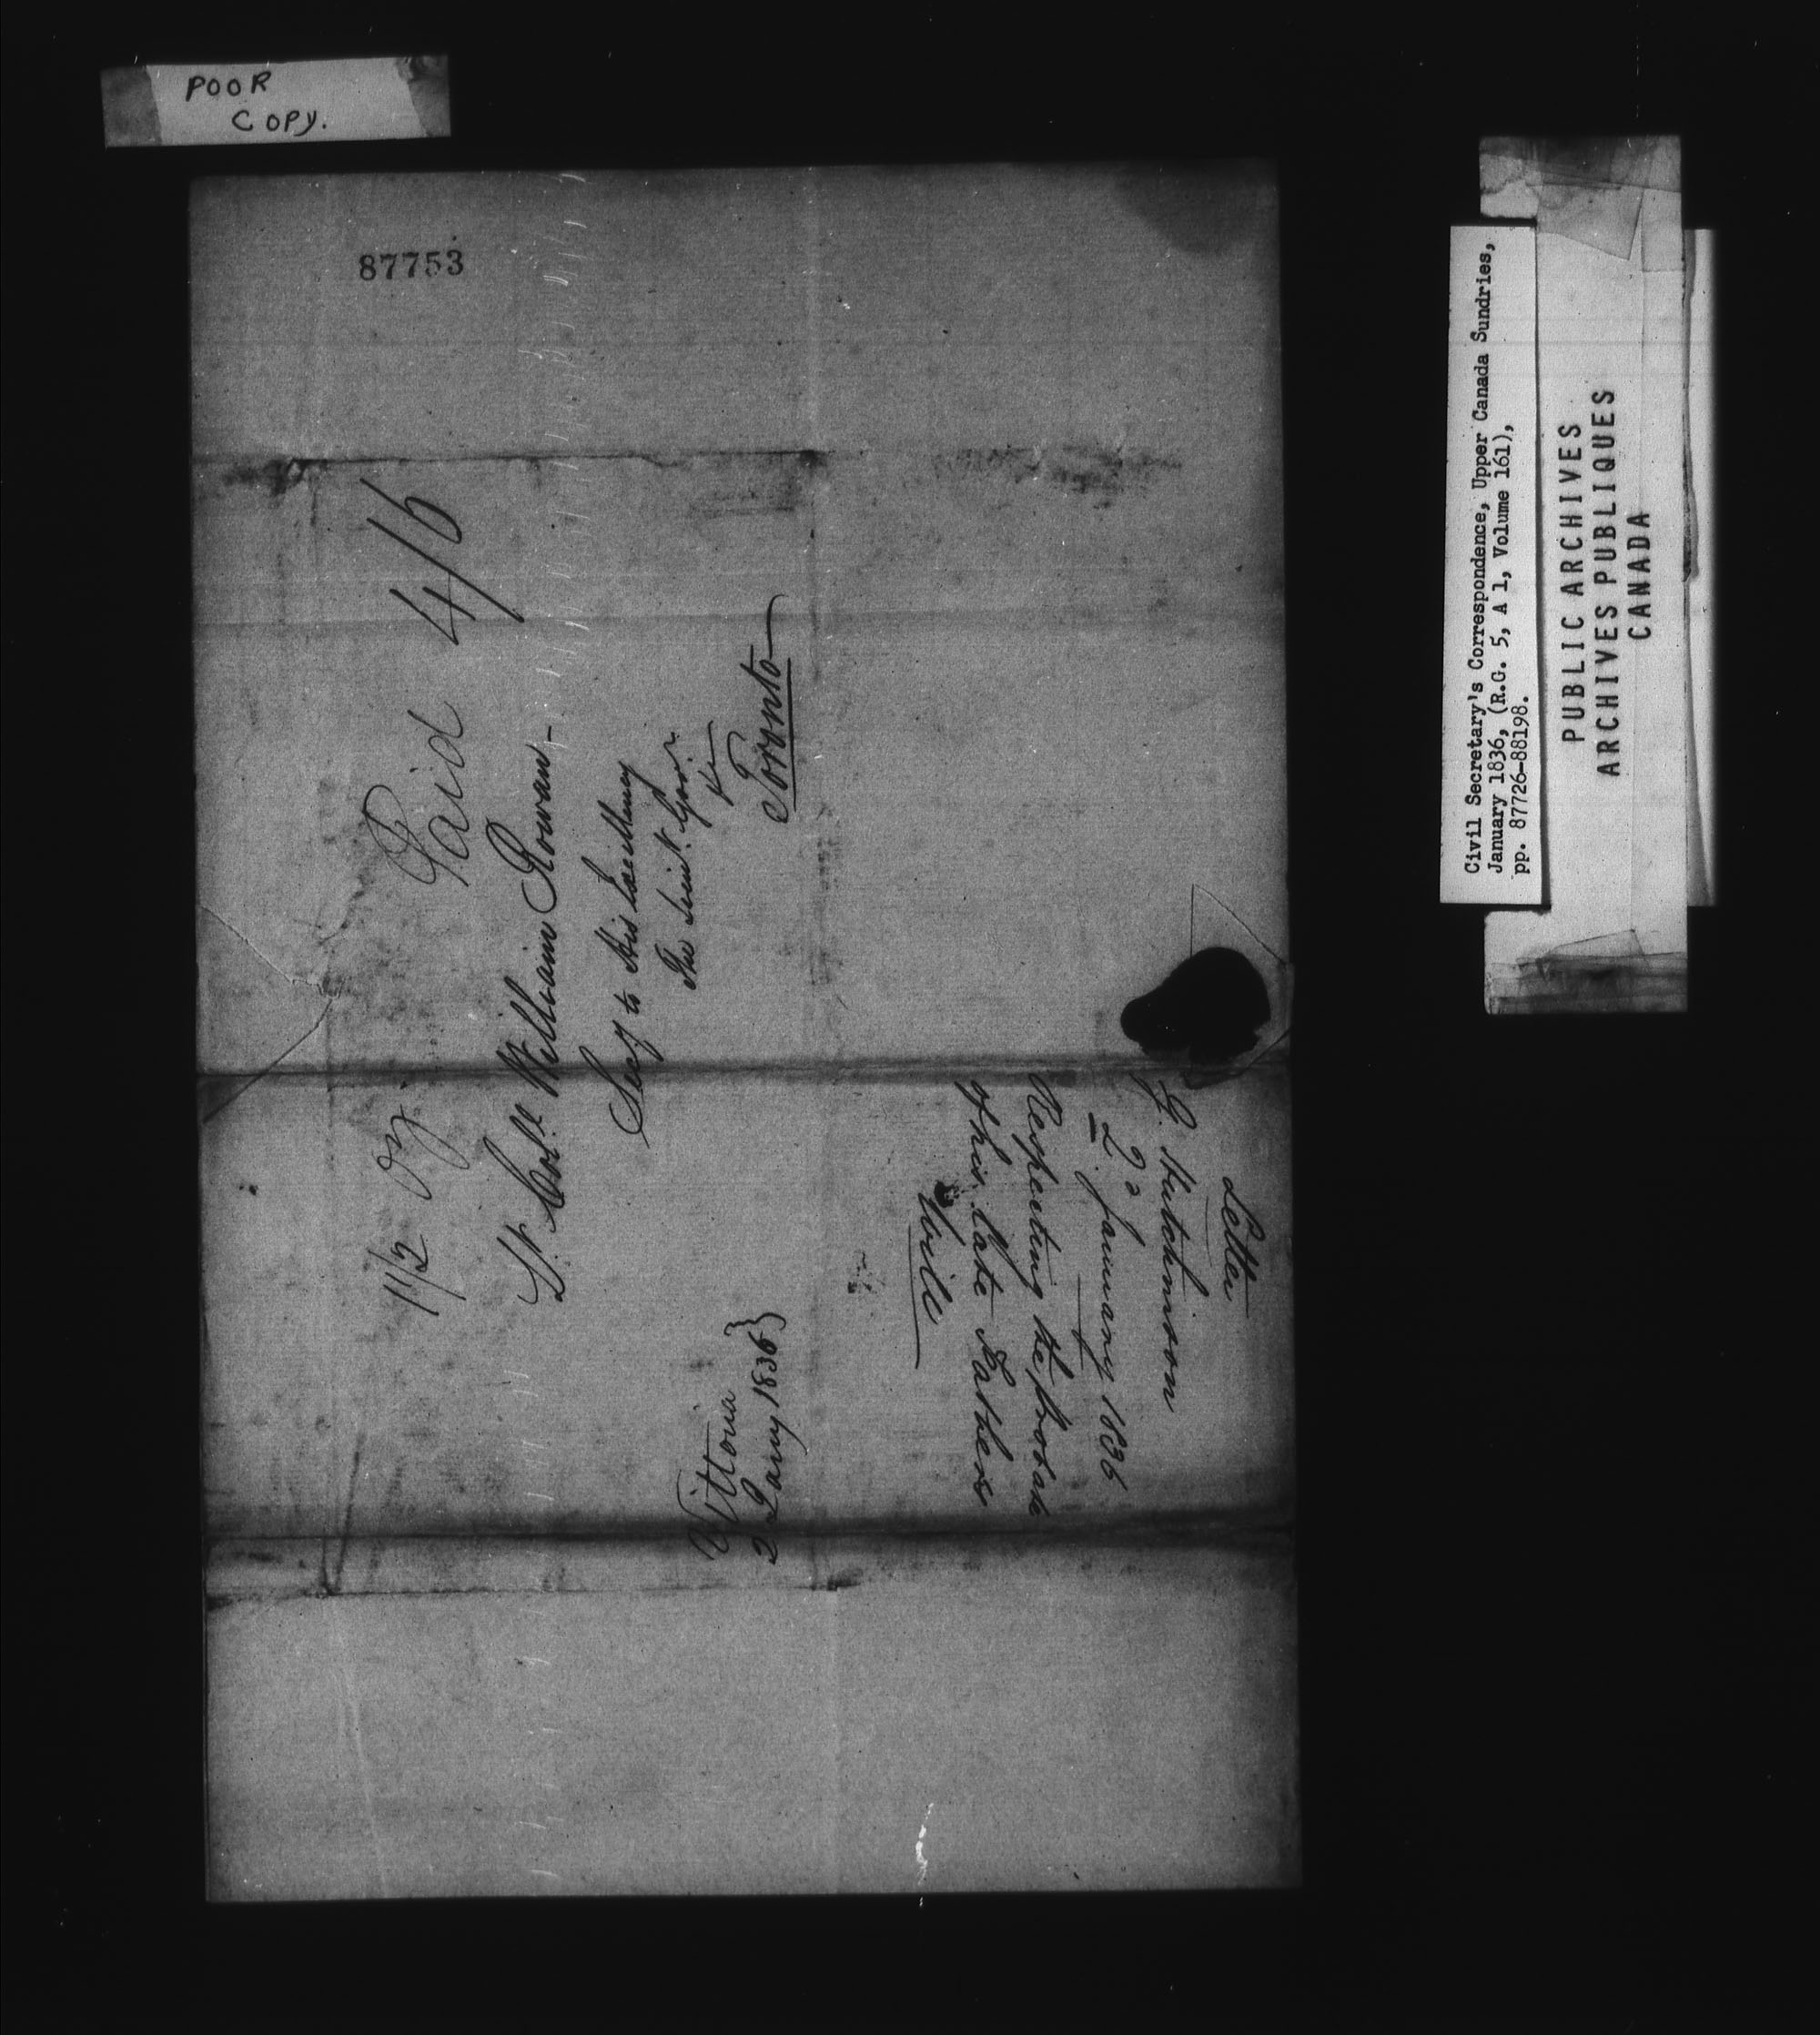 POOR
COPY.
87753
Paid 4/6
1 1/2 Oz.
Lt. Coll. William Rowan-
Secy to His Excellency
The Lieut. Govr.
&c
Toronto
Vittoria
2 Jany 1836
Letter
G. Hutchinson
2d January 1836
Respecting the probate
of his late Fathers
Will
Civil Secretary's Correspondence, Upper Canada Sundries,
January 1836, (R.G. 5, A 1, Volume 161),
pp. 87726-88198.
PUBLIC ARCHIVES
ARCHIVES PUBLIQUES
CANADA